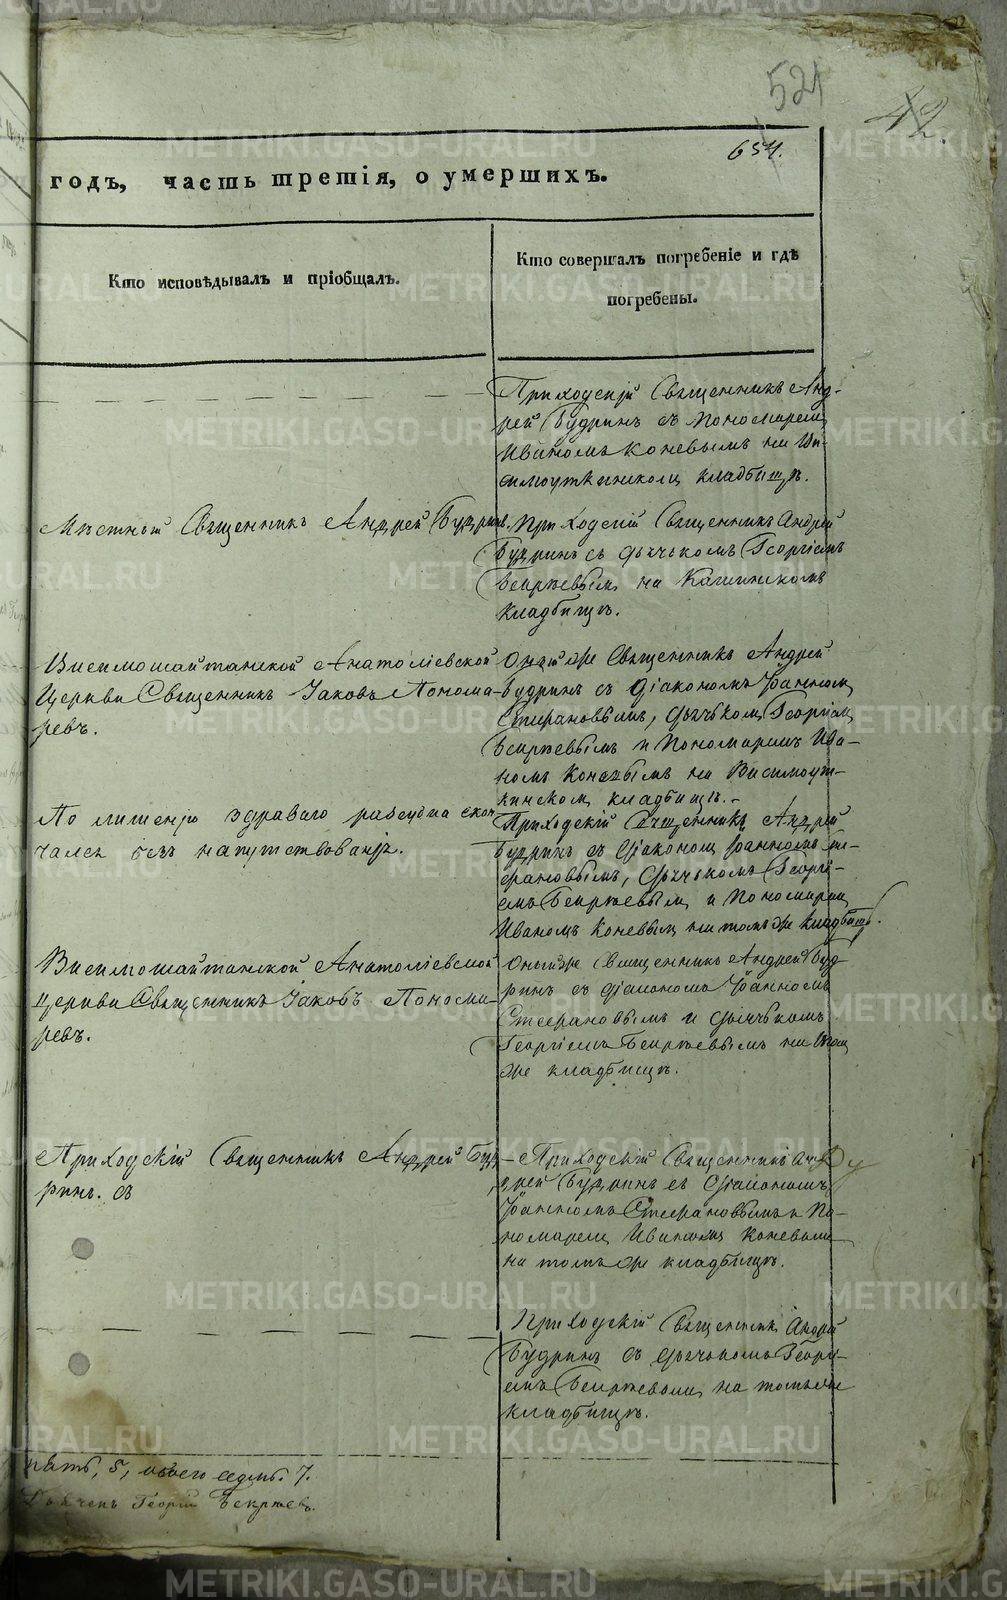 521
42.
654.
годъ, часть третія, о умершихъ.
Кто исповѣдывалъ и пріобщалъ.
Кто совершалъ погребеніе и гдѣ
погребены.
Приходскій Священникъ Анд-
рей Будринъ съ Пономаремъ
Иваномъ Коневымъ на Ви-
симоуткинскомъ кладбищѣ.
Мѣстный Священникъ Андрей Будринъ.
Приходскій Священникъ Андрей
Будринъ съ дьячькомъ Георгіемъ
Бекряевымъ на
кладбищѣ.
Висимошайтанской Анатоліевской
Церкви Священникъ Іаковъ Понома-
ревъ.
Онъ же Священникъ Андрей
Будринъ съ Діакономъ Іоанномъ
Стефановымъ, дьячькомъ Георгіемъ
Бекряевымъ и Пономаремъ Ива-
номъ Коневымъ на Висимоут-
кинскомъ кладбищѣ.-
По лишенію здраваго разсудка скон-
чался безъ напутствованія.
Приходскій Священникъ Андрей
Будринъ съ Діакономъ Іоанномъ Сте-
фановымъ, Дьячькомъ Георгі-
емъ Бекряевымъ и Пономаремъ
Иваномъ Коневымъ на томъ же кладбищѣ.
Висимошайтанской Анатоліевской
Церкви Священникъ Іаковъ Понома-
ревъ.
Оный же Священникъ Андрей Буд-
ринъ съ діакономъ Іоанномъ
Стефановымъ и дьячькомъ
Георгіемъ Бекряевымъ на томъ
же кладбищѣ.
Приходскій Священникъ Андрей Буд-
ринъ. съ
Приходскій Священникъ Анд-
рей Будринъ съ Діакономъ
Іоанномъ Стефановымъ и По-
номаремъ Иваномъ Коневымъ
на томъ же кладбищѣ.
Приходскій Священникъ Андрей
Будринъ съ дьячькомъ Георгі-
емъ Бекряевымъ на томъ же
кладбищѣ.
пять, 5, обоего седмь. 7.
Дьячекъ Георгій Бекряевъ.
METRIKI.GASO-URAL.RU